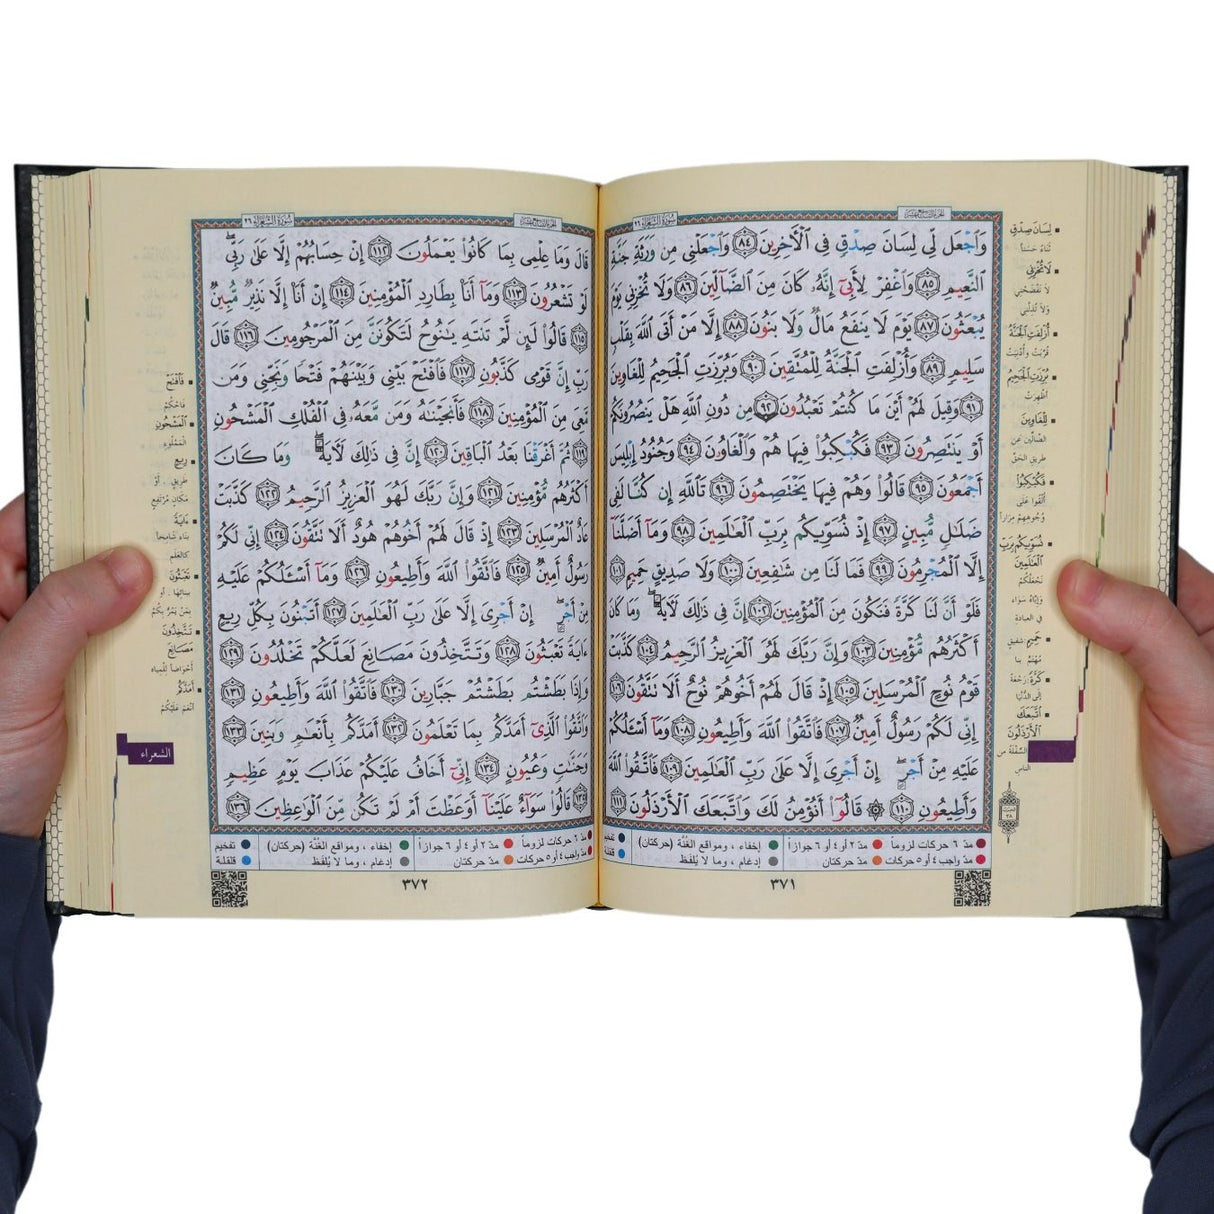 سورة الشعراء ٢٦
وَٱجْعَل لِّى لِسَانَ صِدْقٍ فِى ٱلْـَٔاخِرِينَ ٨٤ وَٱجْعَلْنِى مِن وَرَثَةِ جَنَّةِ
ٱلنَّعِيمِ ٨٥ وَٱغْفِرْ لِأَبِىٓ إِنَّهُۥ كَانَ مِنَ ٱلضَّآلِّينَ ٨٦ وَلَا تُخْزِنِى يَوْمَ
يُبْعَثُونَ ٨٧ يَوْمَ لَا يَنفَعُ مَالٌ وَلَا بَنُونَ ٨٨ إِلَّا مَنْ أَتَى ٱللَّهَ بِقَلْبٍ
سَلِيمٍ ٨٩ وَأُزْلِفَتِ ٱلْجَنَّةُ لِلْمُتَّقِينَ ٩٠ وَبُرِّزَتِ ٱلْجَحِيمُ لِلْغَاوِينَ
٩١ وَقِيلَ لَهُمْ أَيْنَ مَا كُنتُمْ تَعْبُدُونَ ٩٢ مِن دُونِ ٱللَّهِ هَلْ يَنصُرُونَكُمْ
أَوْ يَنتَصِرُونَ ٩٣ فَكُبْكِبُوا۟ فِيهَا هُمْ وَٱلْغَاوُۥنَ ٩٤ وَجُنُودُ إِبْلِيسَ
أَجْمَعُونَ ٩٥ قَالُوا۟ وَهُمْ فِيهَا يَخْتَصِمُونَ ٩٦ تَٱللَّهِ إِن كُنَّا لَفِى
ضَلَٰلٍ مُّبِينٍ ٩٧ إِذْ نُسَوِّيكُم بِرَبِّ ٱلْعَٰلَمِينَ ٩٨ وَمَآ أَضَلَّنَآ
إِلَّا ٱلْمُجْرِمُونَ ٩٩ فَمَا لَنَا مِن شَٰفِعِينَ ١٠٠ وَلَا صَدِيقٍ حَمِيمٍ ١٠١
فَلَوْ أَنَّ لَنَا كَرَّةً فَنَكُونَ مِنَ ٱلْمُؤْمِنِينَ ١٠٢ إِنَّ فِى ذَٰلِكَ لَـَٔايَةً ۖ وَمَا كَانَ
أَكْثَرُهُم مُّؤْمِنِينَ ١٠٣ وَإِنَّ رَبَّكَ لَهُوَ ٱلْعَزِيزُ ٱلرَّحِيمُ ١٠٤ كَذَّبَتْ
قَوْمُ نُوحٍ ٱلْمُرْسَلِينَ ١٠٥ إِذْ قَالَ لَهُمْ أَخُوهُمْ نُوحٌ أَلَا تَتَّقُونَ ١٠٦
إِنِّى لَكُمْ رَسُولٌ أَمِينٌ ١٠٧ فَٱتَّقُوا۟ ٱللَّهَ وَأَطِيعُونِ ١٠٨ وَمَآ أَسْـَٔلُكُمْ
عَلَيْهِ مِنْ أَجْرٍ ۖ إِنْ أَجْرِىَ إِلَّا عَلَىٰ رَبِّ ٱلْعَٰلَمِينَ ١٠٩ فَٱتَّقُوا۟ ٱللَّهَ
وَأَطِيعُونِ ١١٠ ۞ قَالُوٓا۟ أَنُؤْمِنُ لَكَ وَٱتَّبَعَكَ ٱلْأَرْذَلُونَ ١١١
▪ لِسَانَ صِدْقٍ
ثَنَاءً حَسَناً
▪ لَا تُخْزِنِى
لَا تَفْضَحْنِي
وَلَا تُذِلَّنِي
▪ أُزْلِفَتِ ٱلْجَنَّةُ
قُرِّبَتْ وأُدْنِيَتْ
▪ بُرِّزَتِ ٱلْجَحِيمُ
أُظْهِرَتْ
▪ لِلْغَاوِينَ
الضَّالِّينَ عن
طريق الحَقِّ
▪ فَكُبْكِبُوا۟
أُلْقُوا على
وُجُوهِهِمْ مِرَاراً
▪ نُسَوِّيكُم بِرَبِّ
ٱلْعَٰلَمِينَ
نَجْعَلُكُمْ
وإيَّاهُ سَوَاء
في العبادة
▪ حَمِيمٍ شفيق
مُهْتَمّ بنا
▪ كَرَّةً رَجْعَةً
إلى الدُّنْيَا
▪ ٱتَّبَعَكَ
ٱلْأَرْذَلُونَ
السَّفَلَةُ من
الناس
مدّ ٦ حركات لزوماً مدّ ٢ أو ٤ أو ٦ جوازاً إخفاء ، ومواقع الغُنَّة (حركتان) تفخيم
مدّ واجب ٤ أو ٥ حركات مدّ حركتان إدغام ، وما لا يُلفَظ قلقلة
٣٧١
سورة الشعراء ٢٦
قَالَ وَمَا عِلْمِى بِمَا كَانُوا۟ يَعْمَلُونَ ١١٢ إِنْ حِسَابُهُمْ إِلَّا عَلَىٰ رَبِّى ۖ
لَوْ تَشْعُرُونَ ١١٣ وَمَآ أَنَا۠ بِطَارِدِ ٱلْمُؤْمِنِينَ ١١٤ إِنْ أَنَا۠ إِلَّا نَذِيرٌ مُّبِينٌ
١١٥ قَالُوا۟ لَئِن لَّمْ تَنتَهِ يَٰنُوحُ لَتَكُونَنَّ مِنَ ٱلْمَرْجُومِينَ ١١٦ قَالَ
رَبِّ إِنَّ قَوْمِى كَذَّبُونِ ١١٧ فَٱفْتَحْ بَيْنِى وَبَيْنَهُمْ فَتْحًا وَنَجِّنِى وَمَن
مَّعِىَ مِنَ ٱلْمُؤْمِنِينَ ١١٨ فَأَنجَيْنَٰهُ وَمَن مَّعَهُۥ فِى ٱلْفُلْكِ ٱلْمَشْحُونِ
١١٩ ثُمَّ أَغْرَقْنَا بَعْدُ ٱلْبَاقِينَ ١٢٠ إِنَّ فِى ذَٰلِكَ لَـَٔايَةً ۖ وَمَا كَانَ
أَكْثَرُهُم مُّؤْمِنِينَ ١٢١ وَإِنَّ رَبَّكَ لَهُوَ ٱلْعَزِيزُ ٱلرَّحِيمُ ١٢٢ كَذَّبَتْ
عَادٌ ٱلْمُرْسَلِينَ ١٢٣ إِذْ قَالَ لَهُمْ أَخُوهُمْ هُودٌ أَلَا تَتَّقُونَ ١٢٤ إِنِّى لَكُمْ
رَسُولٌ أَمِينٌ ١٢٥ فَٱتَّقُوا۟ ٱللَّهَ وَأَطِيعُونِ ١٢٦ وَمَآ أَسْـَٔلُكُمْ عَلَيْهِ
مِنْ أَجْرٍ ۖ إِنْ أَجْرِىَ إِلَّا عَلَىٰ رَبِّ ٱلْعَٰلَمِينَ ١٢٧ أَتَبْنُونَ بِكُلِّ رِيعٍ
ءَايَةً تَعْبَثُونَ ١٢٨ وَتَتَّخِذُونَ مَصَانِعَ لَعَلَّكُمْ تَخْلُدُونَ ١٢٩
وَإِذَا بَطَشْتُم بَطَشْتُمْ جَبَّارِينَ ١٣٠ فَٱتَّقُوا۟ ٱللَّهَ وَأَطِيعُونِ ١٣١
وَٱتَّقُوا۟ ٱلَّذِىٓ أَمَدَّكُم بِمَا تَعْلَمُونَ ١٣٢ أَمَدَّكُم بِأَنْعَٰمٍ وَبَنِينَ ١٣٣
وَجَنَّٰتٍ وَعُيُونٍ ١٣٤ إِنِّىٓ أَخَافُ عَلَيْكُمْ عَذَابَ يَوْمٍ عَظِيمٍ
١٣٥ قَالُوا۟ سَوَآءٌ عَلَيْنَآ أَوَعَظْتَ أَمْ لَمْ تَكُن مِّنَ ٱلْوَٰعِظِينَ ١٣٦
▪ فَٱفْتَحْ
فَاحْكُمْ
▪ ٱلْمَشْحُونِ
المَمْلُوءِ
▪ رِيعٍ
طريقٍ . أوْ
مَكانٍ مُرْتَفِعٍ
▪ ءَايَةً
بناءً شامخاً
كالعَلَمِ
▪ تَعْبَثُونَ
ببنائها . أو
بمَنْ يَمُرُّ بِكُمْ
▪ تَتَّخِذُونَ
مَصَانِعَ
أَحْوَاضاً للْمِياهِ
▪ أَمَدَّكُم
أنْعَمَ عَلَيْكُمْ
الشعراء
مدّ ٦ حركات لزوماً مدّ ٢ أو ٤ أو ٦ جوازاً إخفاء ، ومواقع الغُنَّة (حركتان) تفخيم
مدّ واجب ٤ أو ٥ حركات مدّ حركتان إدغام ، وما لا يُلفَظ قلقلة
٣٧٢